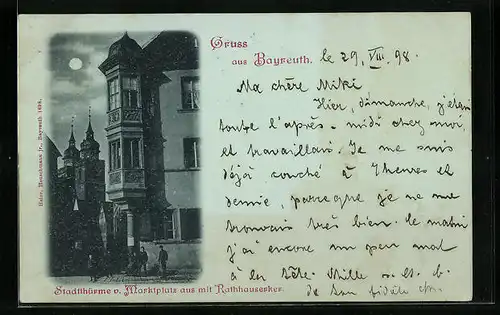 Gruss
aus Bayreuth. le 29. VIII. 98.
Ma chère Miki
Hier, dimanche, j'étais
toute l'après-midi chez moi,
et travaillais. Je me suis
déjà couché à 7 heures et
demie, parceque je ne me
trouvais très bien. Ce matin
j'ai encore un peu mal
à la tête. Mille
de ton fidèle
Stadtthürme v. Marktplatz aus mit Rathhauserker.
Bayreuth 1898.